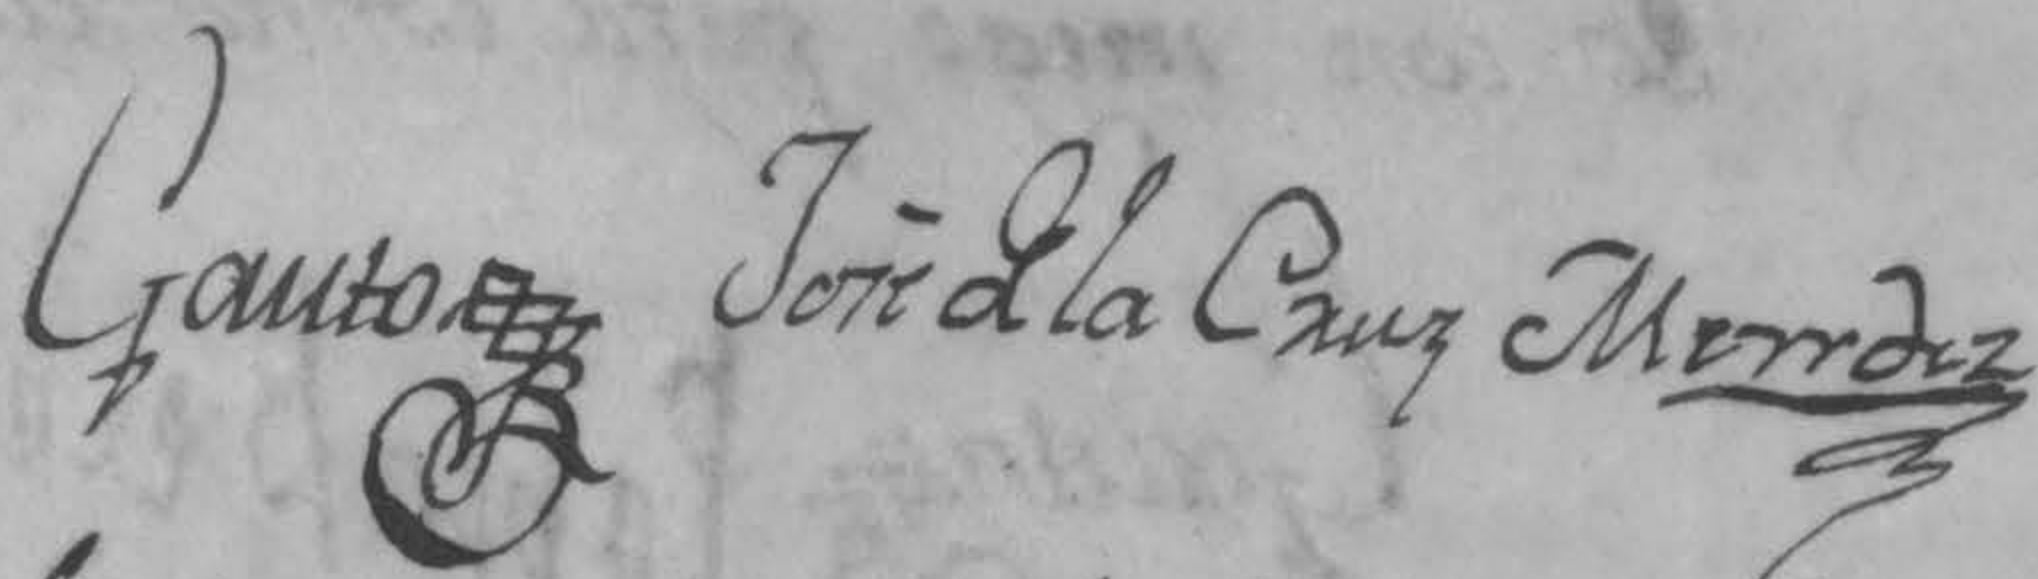 Gauto José de la Cruz Mendez